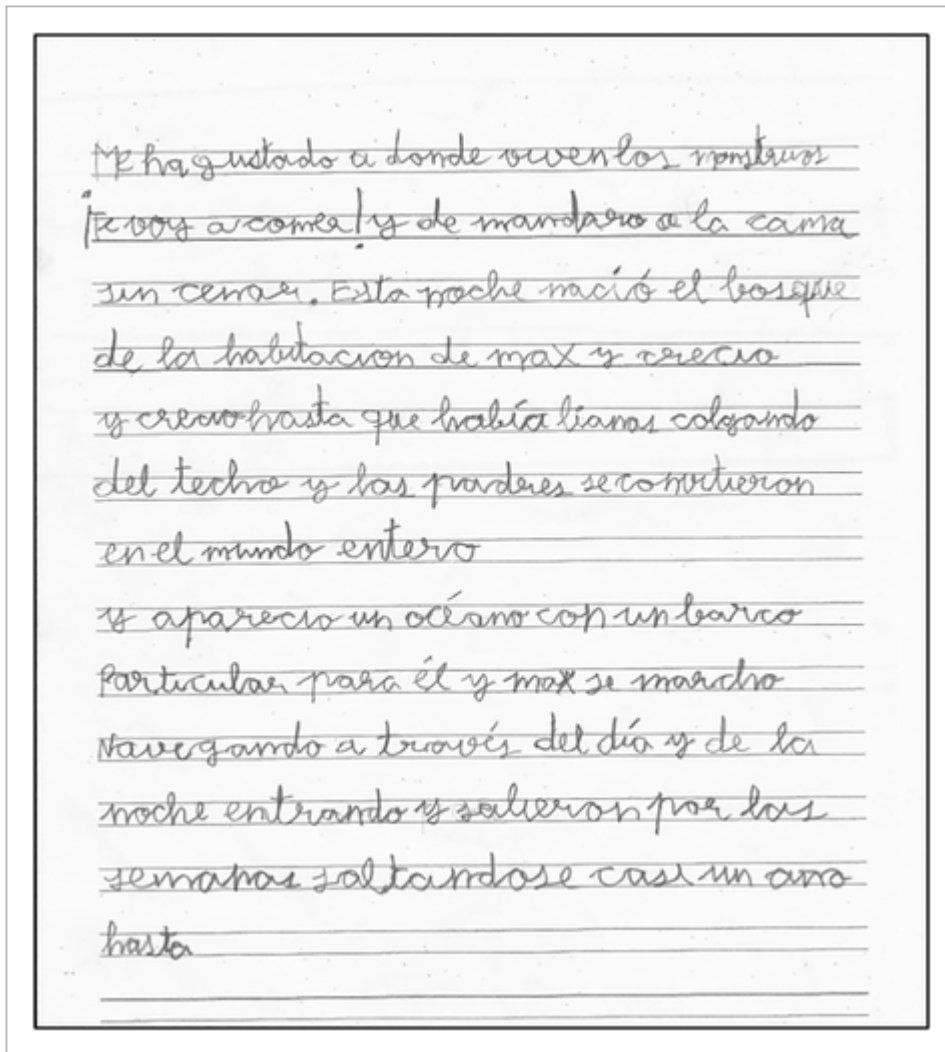 Me ha gustado a donde viven los monstruos
¡Te voy a comer! y de mandaro a la cama
sin cenar. Esta noche nació el bosque
de la habitacion de max y crecio
y crecio hasta que había lianas colgando
del techo y las paderes se convirtieron
en el mundo entero
y aparecio un océano con un barco
Particular para él y max se marcho
Navegando a través del día y de la
noche entrando y salieron por las
semanas saltandose casi un ano
hasta